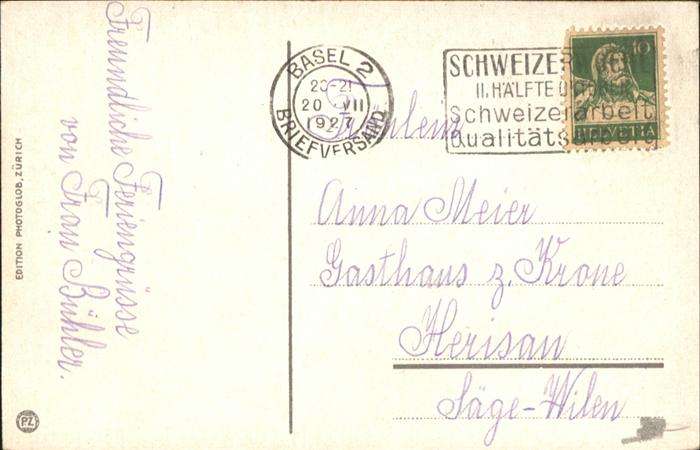 Freundliche Feriengrüsse
von Frau Bühler.
EDITION PHOTOGLOB, ZÜRICH
PZ
BASEL 2
20-21
20 VII
1927
BRIEFVERSAND
SCHWEIZER
II. HÄLFTE
Schweizerarbeit
Qualitätsarbeit
10
HELVETIA
Fräulein
Anna Meier
Gasthaus z. Krone
Herisau
Säge-Wilen